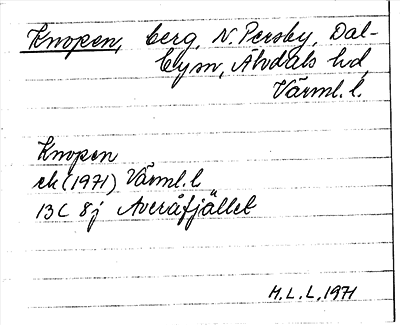 Knopen, berg, N. Persby, Dal-
by sn, Älvdals hd,
Värml. l.
Knopen
ek (1971) Värml. l
13C 8j Averåfjället
H.L.L. 1971